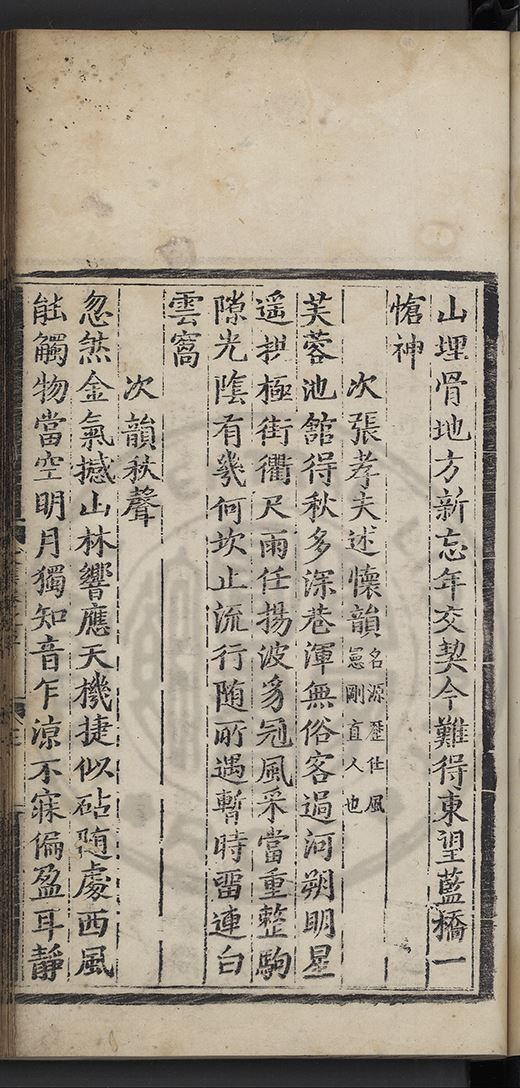 山埋骨地方新忘年交契今難得東望藍橋一
愴神
次張孝夫述懷韻名源歷仕風憲剛直人也
芙蓉池館得秋多深巷渾無俗客過河朔明星
遥拱極街衢尺雨任揚波豸冠風采當重整駒
隙光陰有幾何坎止流行随所遇暫時畱連白
雲窩
次韻秋聲
忽然金氣撼山林響應天機捷似砧随處西風
能觸物當空明月獨知音乍涼不寐偏盈耳靜